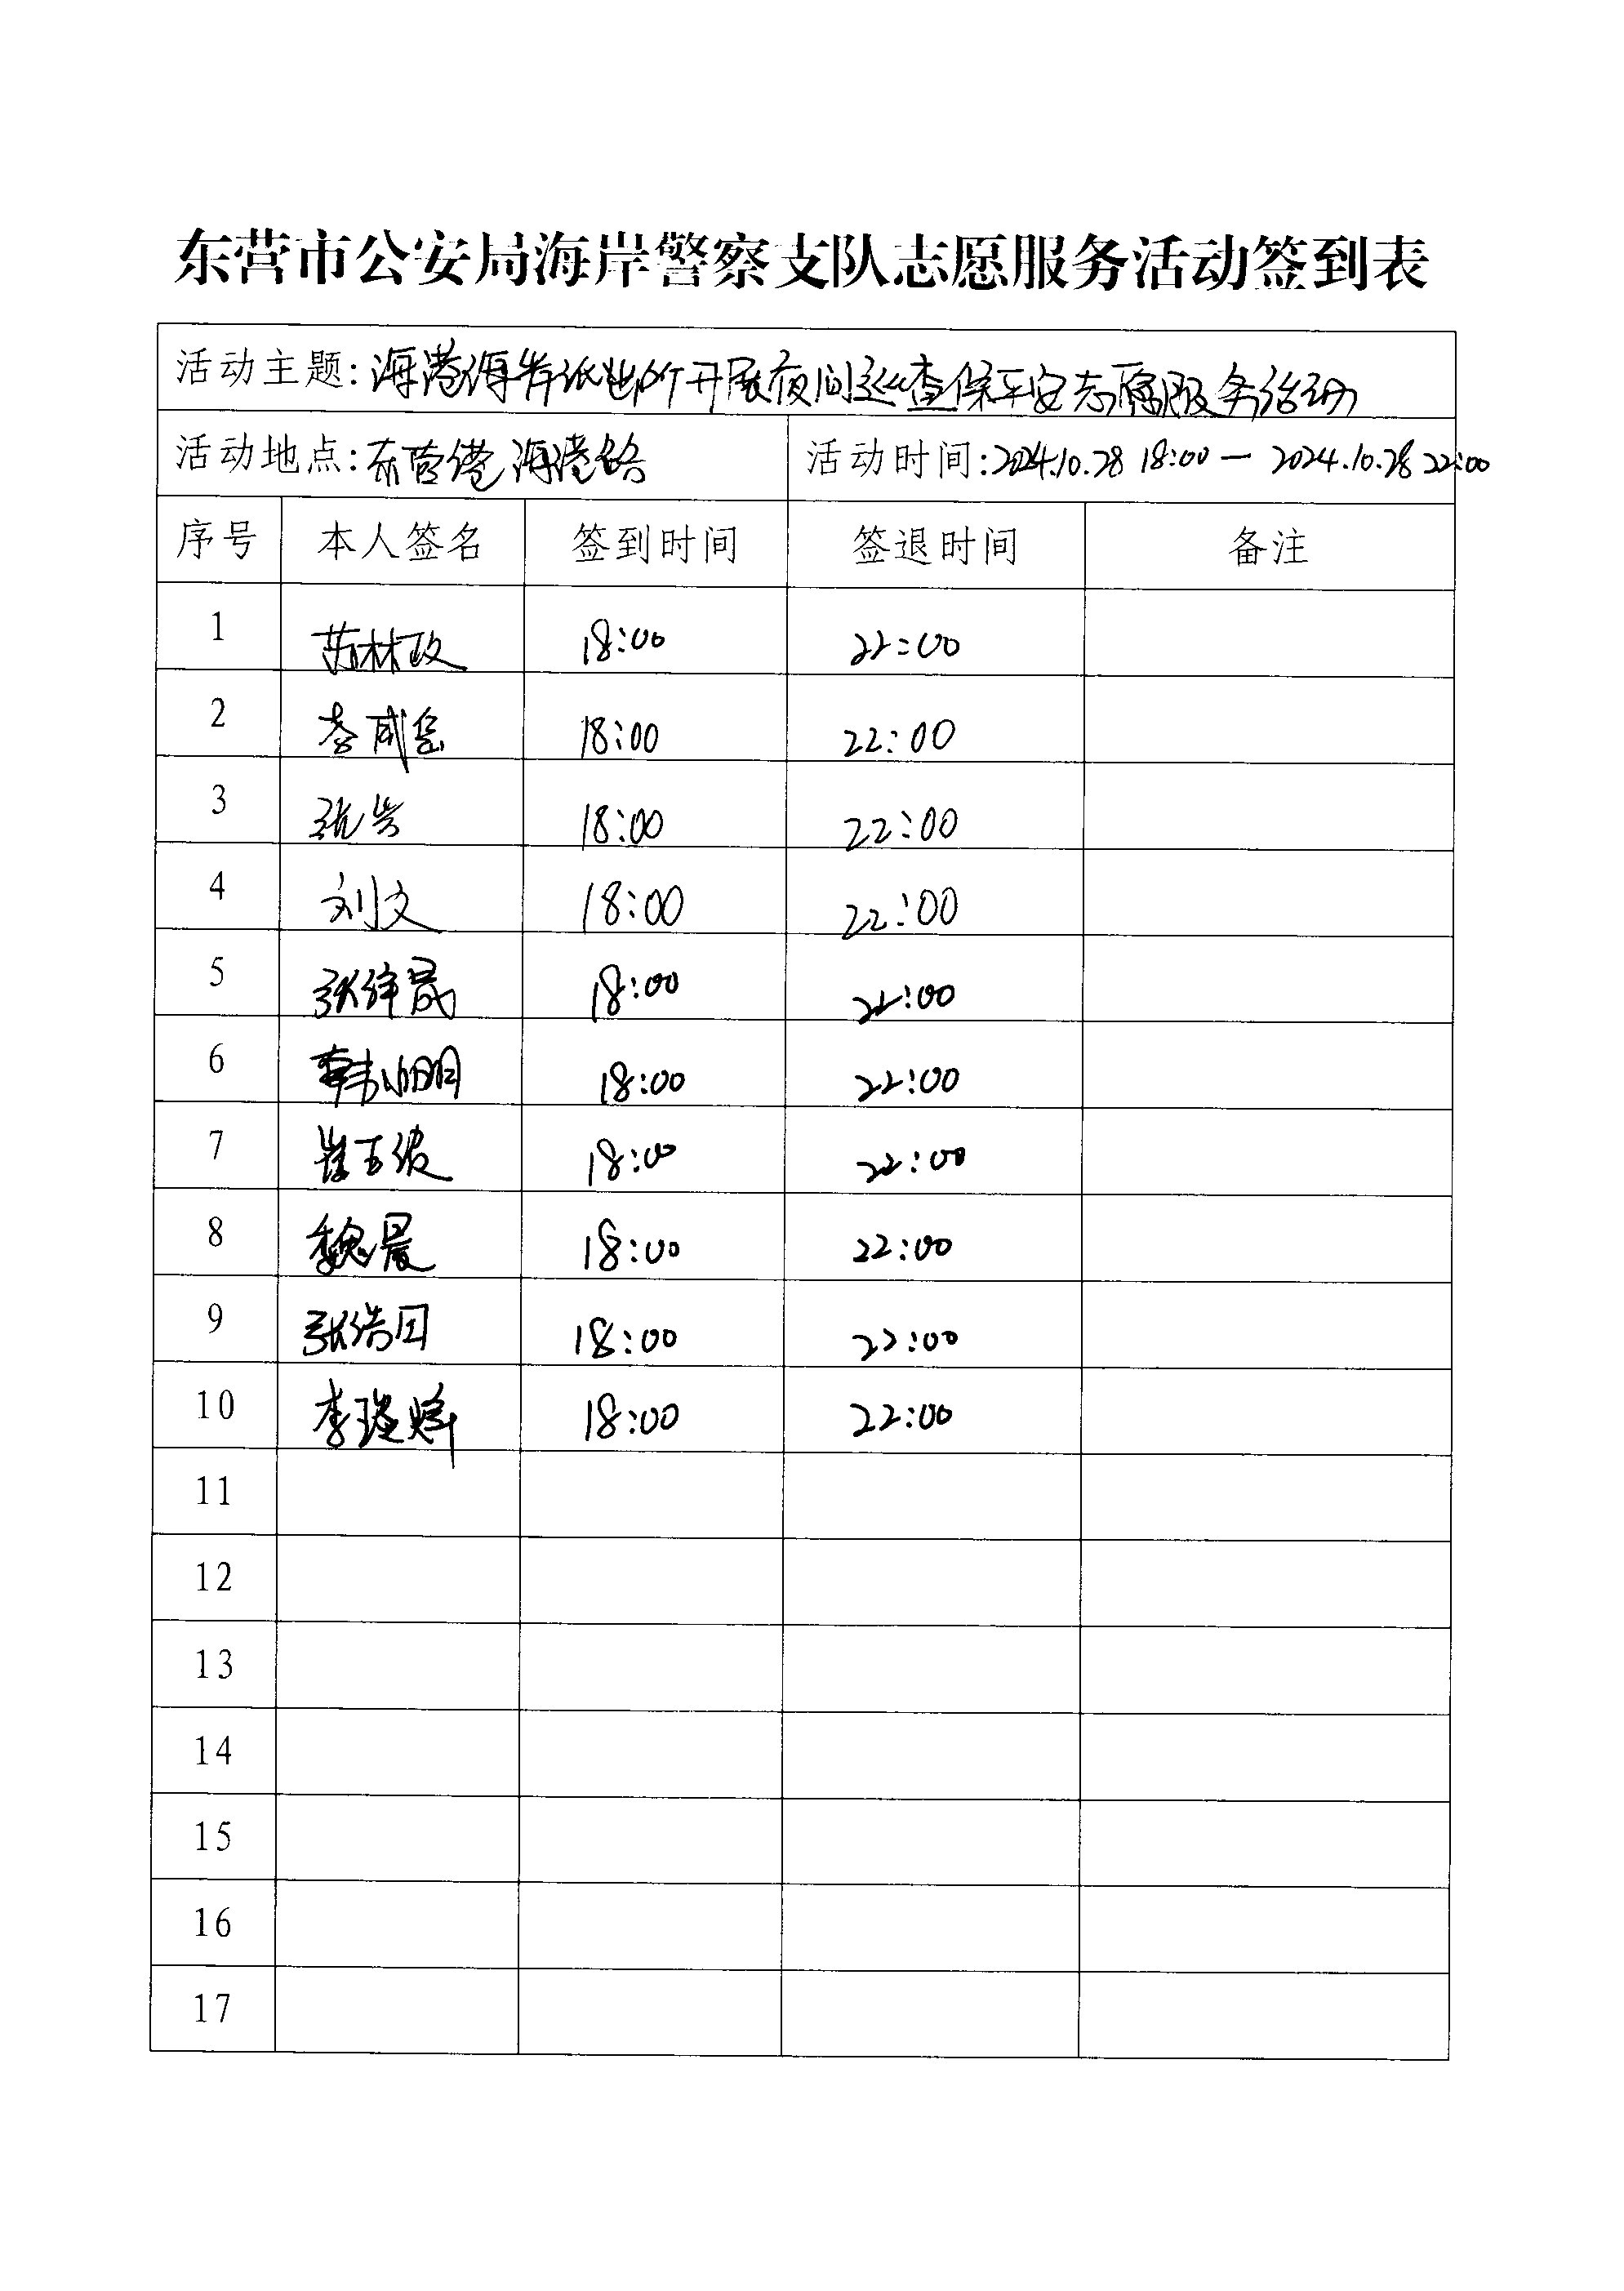 东营市公安局海岸警察支队志愿服务活动签到表
活动主题:海港海岸派出所开展夜间巡查保平安志愿服务活动
活动地点:东营港海港路 活动时间:2024.10.28 18:00— 2024.10.28 22:00
序号 本人签名 签到时间 签退时间 备注
1 苏林政 18:00 22:00
2 18:00 22:00
3 18:00 22:00
4 刘文 18:00 22:00
5 张绎晟 18:00 22:00
6 韩明明 18:00 22:00
7 崔玉波 18:00 22:00
8 魏晨 18:00 22:00
9 张浩田 18:00 22:00
10 李瑾烨 18:00 22:00
11
12
13
14
15
16
17